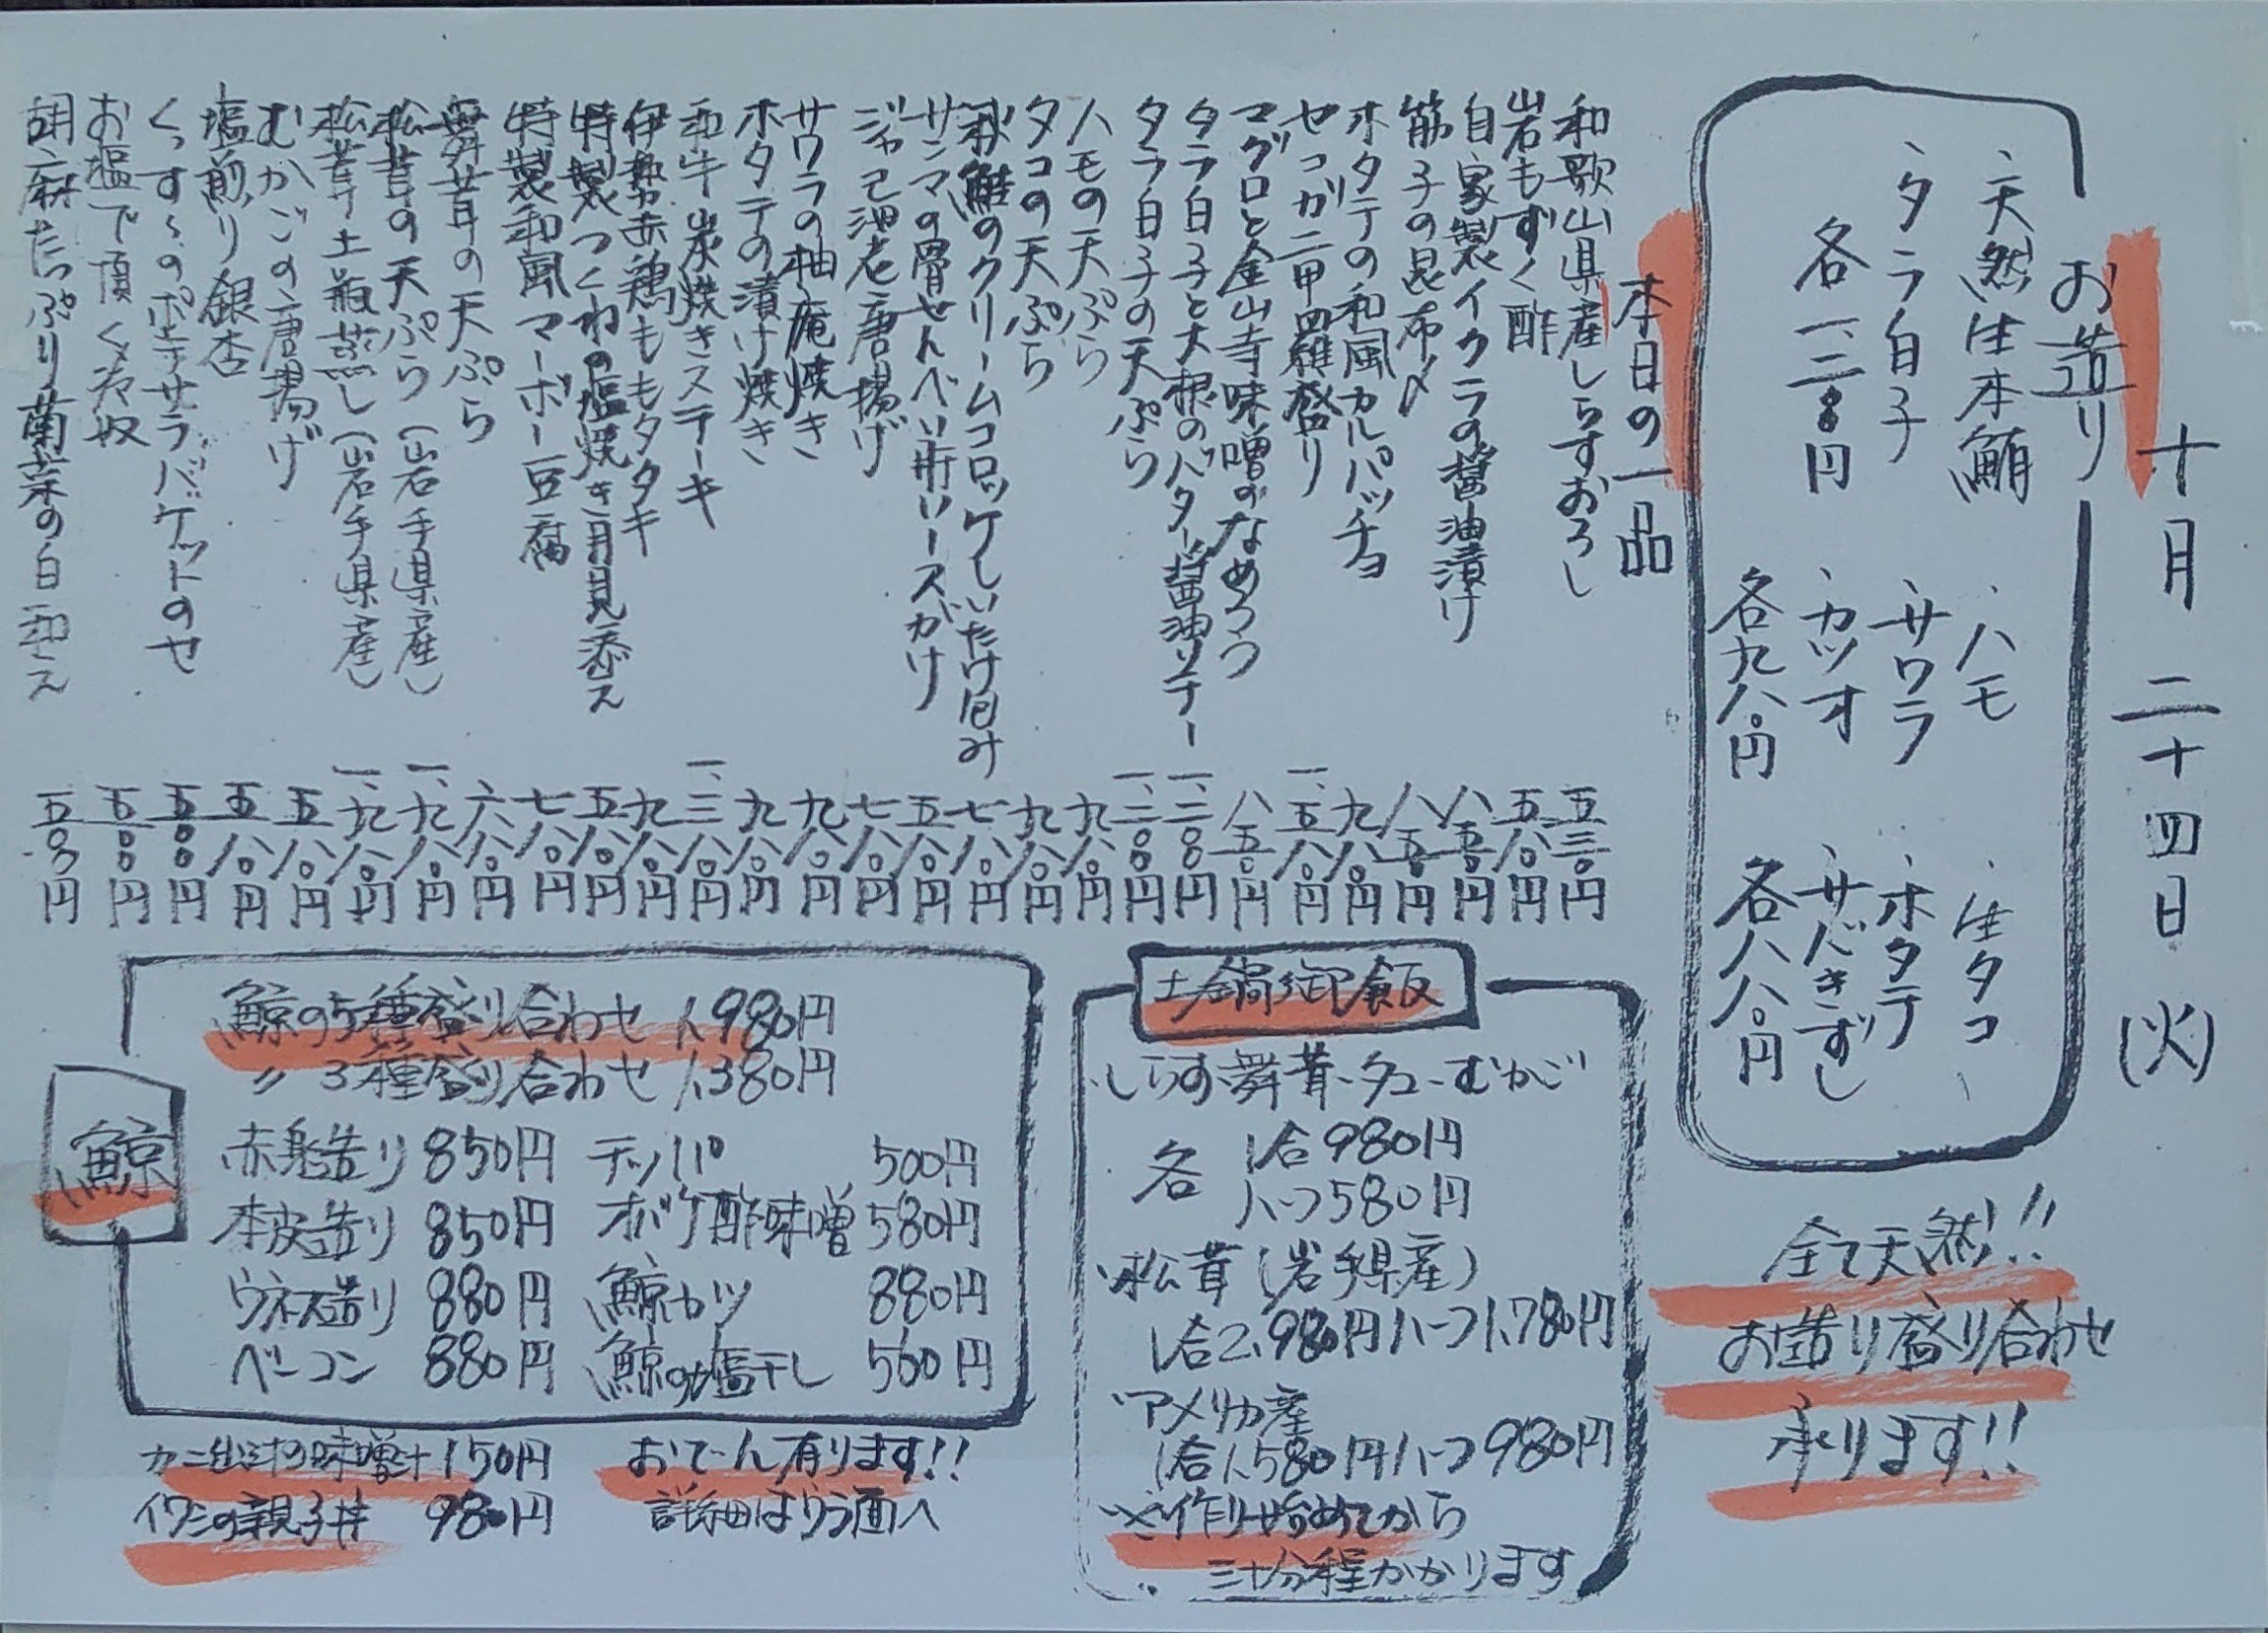 十月二十四日(火)
お造り
・天然生本鮪
・タラ白子
各一、二〇〇円
・ハモ
・サワラ
・カツオ
各九八〇円
・生タコ
・ホタテ
・サバきずし
各八八〇円
全て天然!!
お造り盛り合わせ
承ります!!
本日の一品
和歌山県産しらすおろし 五三〇円
岩もずく酢 五八〇円
自家製イクラの醤油漬け 八五〇円
筋子の昆布〆 八五〇円
ホタテの和風カルパッチョ 九八〇円
セコガニ甲羅盛り 一、五八〇円
マグロと金山寺味噌のなめろう 八五〇円
タラ白子と大根のバター醤油ソテー 一、二〇〇円
タラ白子の天ぷら 一、二〇〇円
ハモの天ぷら 九八〇円
タコの天ぷら 九八〇円
秋鮭のクリームコロッケしいたけ包み 七八〇円
サンマの骨せんべい肝ソースがけ 五八〇円
ジャコ池老唐揚げ 七八〇円
サワラの柚庵焼き 九八〇円
ホタテの漬け焼き 九八〇円
和牛炭焼きステーキ 一、三八〇円
伊勢赤鶏ももタタキ 九八〇円
特製つくねの塩焼き月見添え 五八〇円
特製和風マーボー豆腐 七八〇円
舞茸の天ぷら 六八〇円
松茸の天ぷら(岩手県産) 一、九八〇円
松茸土瓶蒸し(岩手県産) 一、九八〇円
むかごの唐揚げ 五八〇円
塩煎り銀杏 五八〇円
くっすくのポテサラバケットのせ 五〇〇円
お塩で頂く冷奴 五〇〇円
胡麻たっぷり菊菜の白和え 五〇〇円
土鍋御飯
・しらす・舞茸・タコ・むかご
各 1合980円
ハーフ580円
・松茸(岩手県産)
1合2,980円ハーフ1,780円
・アメリカ産
1合1,580円ハーフ980円
※作り始めてから
三十分程かかります
鯨
鯨の5種盛り合わせ 1,980円
〃 3種盛り合わせ 1,380円
赤身造り 850円 テッパ 500円
本皮造り 850円 オバケ酢味噌 580円
ウネス造り 880円 鯨カツ 880円
ベーコン 880円 鯨の塩干し 500円
カニ出汁の味噌汁 150円
イワシの親子丼 980円
おでん有ります!!
詳細はウラ面へ